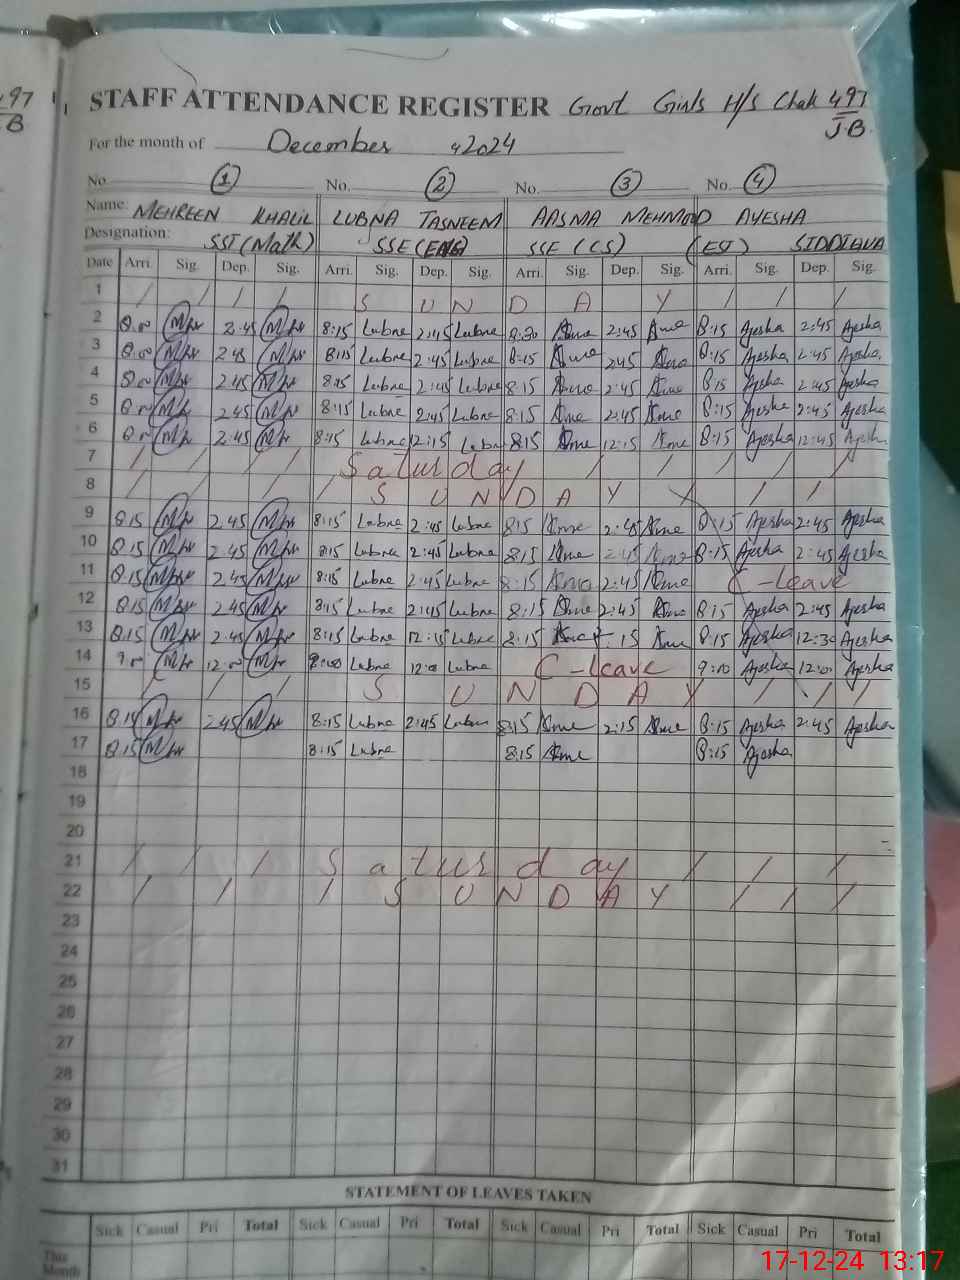 497
B
STAFF ATTENDANCE REGISTER Govt Girls H/S Chak 497
J.B.
For the month of December 2024
No. 1 No. 2 No. 3 No. 4
Name: MEHREEN KHALIL LUBNA TASNEEM AASMA MEHMOOD AYESHA
Designation: SST (Math) SSE (ENG) SSE (CS) (EST) SIDDIQUA
Date Arri. Sig. Dep. Sig. Arri. Sig. Dep. Sig. Arri. Sig. Dep. Sig. Arri. Sig. Dep. Sig.
1 / / / / S U N D A Y / / /
2 8.00 2.45 8:15 Lubna 2:45 Lubna 8:30 2:45 8:15 Ayesha 2:45 Ayesha
3 8.00 2.45 8:15 Lubna 2:45 Lubna 8:15 2:45 8:15 Ayesha 2:45 Ayesha
4 8.00 2.45 8:15 Lubna 2:45 Lubna 8:15 2:45 8:15 Ayesha 2:45 Ayesha
5 2.45 8:15 Lubna 2:45 Lubna 8:15 2:45 8:15 Ayesha 2:45 Ayesha
6 2.45 8:15 Lubna 12:15 Lubna 8:15 12:15 8:15 Ayesha 12:45 Ayesha
7 / / / / Saturday / / / / / /
8 / / / / / S U N D A Y / / /
9 8.15 2.45 8:15 Lubna 2:45 Lubna 8:15 2:45 8:15 Ayesha 2:45 Ayesha
10 8.15 2.45 8:15 Lubna 2:45 Lubna 8:15 2:45 8:15 Ayesha 2:45 Ayesha
11 8.15 2.45 8:15 Lubna 2:45 Lubna 8:15 2:45 C-leave
12 8.15 2.45 8:15 Lubna 2:45 Lubna 8:15 2:45 8:15 Ayesha 2:45 Ayesha
13 8.15 2.45 8:15 Lubna 12:15 Lubna 8:15 8:15 Ayesha 12:30 Ayesha
14 12.00 Lubna Lubna C-leave 9:00 Ayesha 12:00 Ayesha
15 / / / S U N D A Y / / /
16 8.15 2.45 8:15 Lubna 2:45 Lubna 8:15 2:15 8:15 Ayesha 2:45 Ayesha
17 8.15 8:15 Lubna 8:15 8:15 Ayesha
18
19
20
21 / / / Saturday / / / /
22 / / / S U N D A Y / / /
23
24
25
26
27
28
29
30
31
STATEMENT OF LEAVES TAKEN
Sick Casual Pri Total Sick Casual Pri Total Sick Casual Pri Total Sick Casual Pri Total
This
Month
17-12-24 13:17